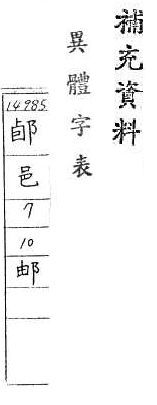 補充資料
異體字表
14985
邑
7
10
邮